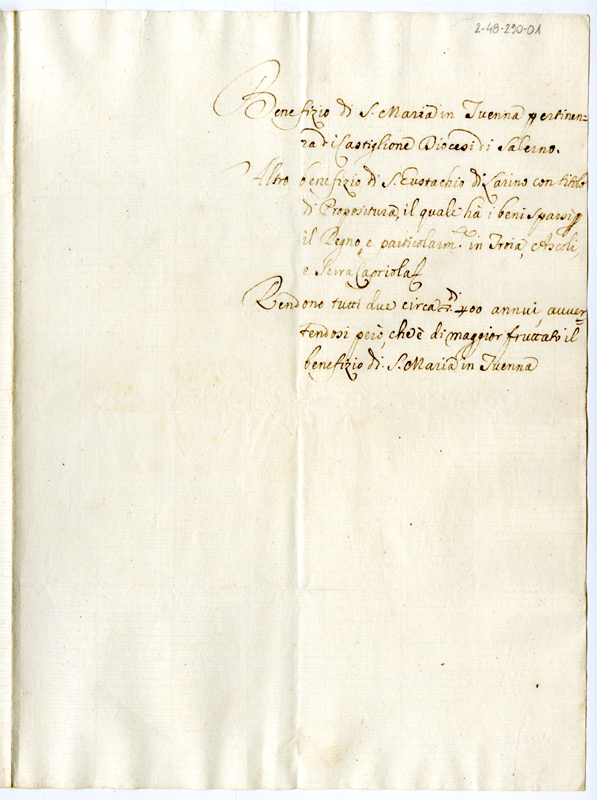 2-48-290-01
Benefizio di S. Maria in Iuenna pertinen=
za di Castiglione Diocesi di Salerno.
Altro benefizio di S. Eustachio di Larino con titolo
di Propositura, il quale hà i beni sparsi p
il Regno, e particolarm.te in Troia, Ascoli,
e Serra Capriola
Rendono tutti due circa D.i 400 annui, auuer=
tendosi però, che è di maggior fruttato il
benefizio di S. Maria in Iuenna